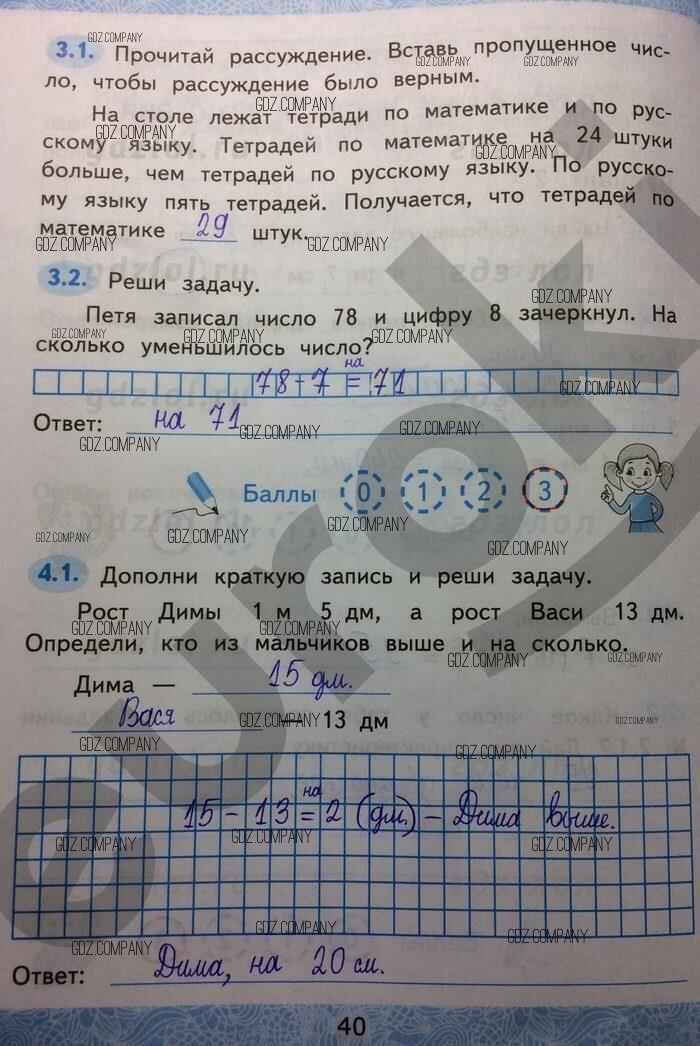 3.1. Прочитай рассуждение. Вставь пропущенное чис-
ло, чтобы рассуждение было верным.
На столе лежат тетради по математике и по рус-
скому языку. Тетрадей по математике на 24 штуки
больше, чем тетрадей по русскому языку. По русско-
му языку пять тетрадей. Получается, что тетрадей по
математике 29 штук.
3.2. Реши задачу.
Петя записал число 78 и цифру 8 зачеркнул. На
сколько уменьшилось число?
на
78-7=71
Ответ: на 71
Баллы 0 1 2 3
4.1. Дополни краткую запись и реши задачу.
Рост Димы 1 м 5 дм, а рост Васи 13 дм.
Определи, кто из мальчиков выше и на сколько.
Дима — 15 дм.
Вася — 13 дм
на
15-13=2 (дм.) - Дима выше.
Ответ: Дима, на 20 см.
40
GDZ.COMPANY
euroki